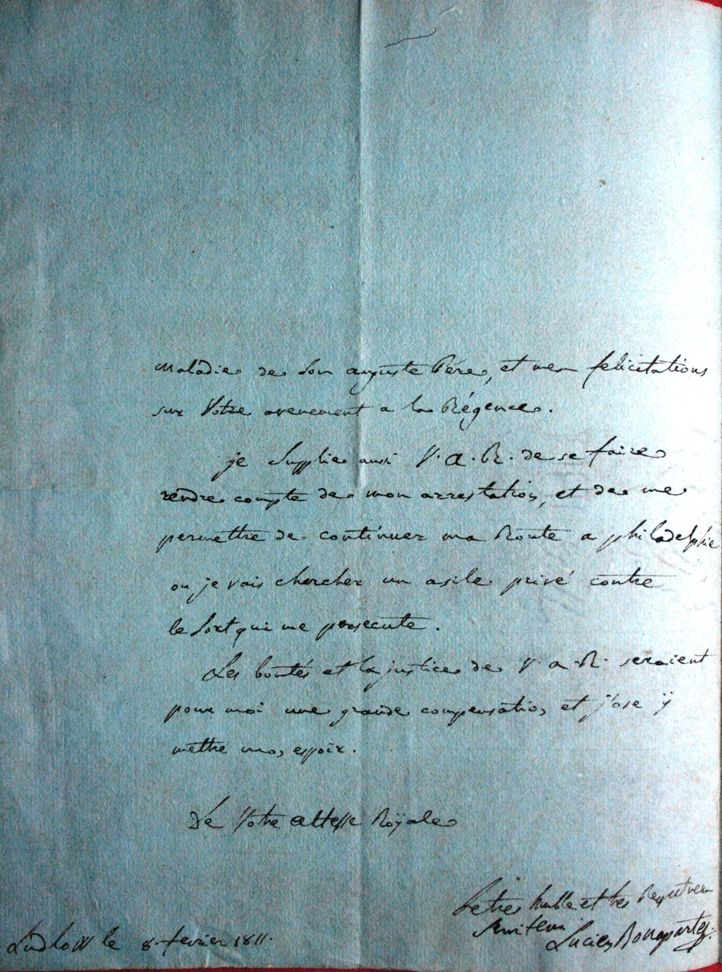 maladie de son auguste Père, et mes felicitations
sur Votre avenement a la Régence.
je supplie aussi V. A. R. de se faire
rendre compte de mon arrestation, et de me
permettre de continuer ma Route a philadelphie
ou je vais chercher un asile privé contre
le sort qui me persecute.
Les bontés et la justice de V. A. R. seraient
pour moi une grande compensation, et j'ose ÿ
mettre mon espoir.
De Votre altesse Roÿale
Le très humble et très Respectueux
Serviteur
Lucien Bonaparte.
Ludlow le 8 fevrier 1811.